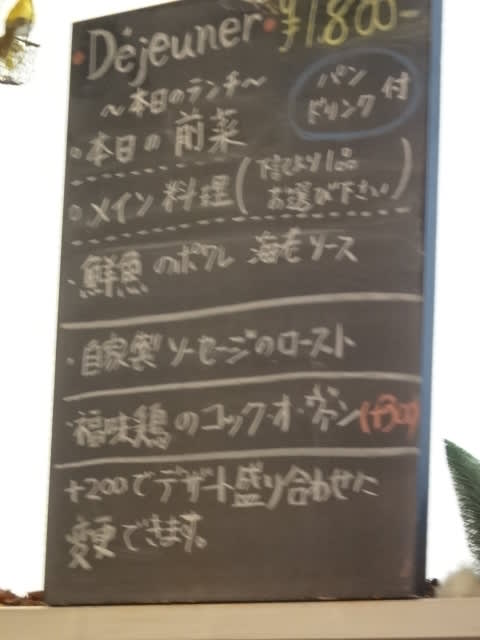 Déjeuner ¥1.800-
～本日のランチ～
パン
ドリンク 付
○本日の前菜
○メイン料理(下記より1品
お選び下さい)
・鮮魚のポワレ 海老ソース
・自家製ソーセージのロースト
・福味鶏のコック・オ・ヴァン(+300)
+200でデザート盛り合わせに
変更できます。